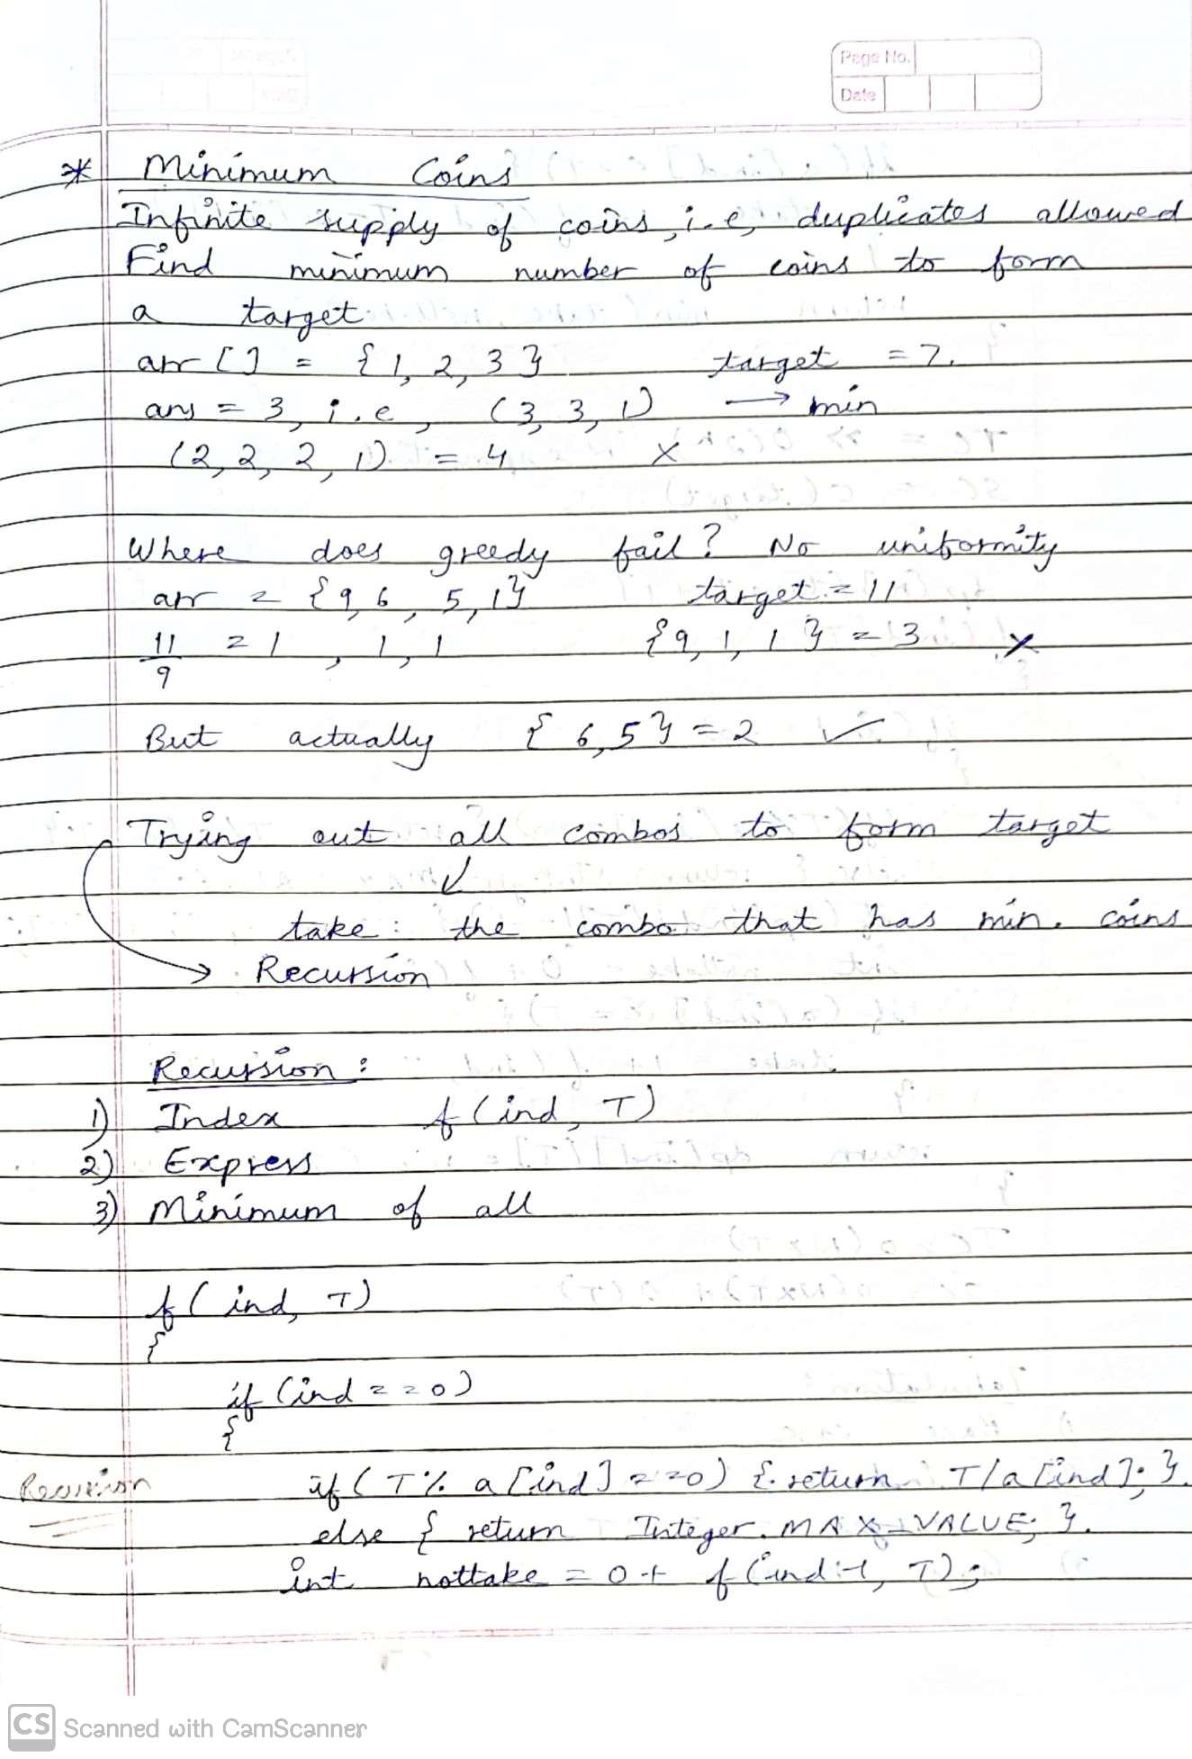 Page No.
Date
* Minimum Coins
Infinite supply of coins, i.e, duplicates allowed
Find minimum number of coins to form
a target
arr [] = {1, 2, 3} target = 7.
ans = 3, i.e, (3, 3, 1) → min
(2, 2, 2, 1) = 4 ×
Where does greedy fail? No uniformity
arr = {9, 6, 5, 1} target = 11
11/9 = 1, 1, 1 {9, 1, 1} = 3 ×
But actually {6, 5} = 2 ✓
Trying out all combos to form target
↓
take : the combo that has min. coins
→ Recursion
Recursion :
1) Index f(ind, T)
2) Express
3) Minimum of all
f(ind, T)
{
if (ind == 0)
{
Recursion if (T % a[ind] == 0) { return T/a[ind]; }
else { return Integer.MAX_VALUE; }
int nottake = 0 + f(ind-1, T);
CS Scanned with CamScanner